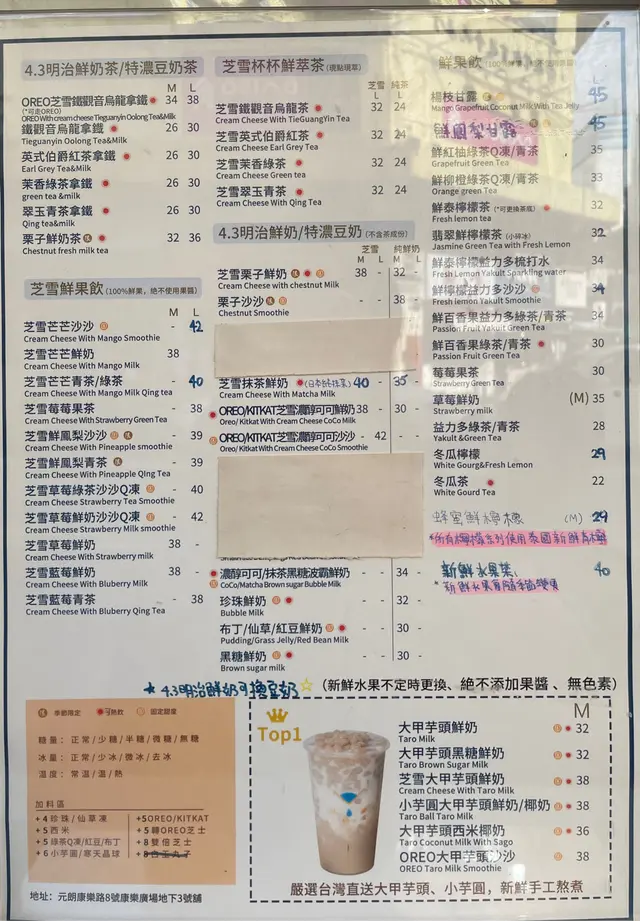 4.3明治鮮奶茶/特濃豆奶茶
M L
OREO芝雪鐵觀音烏龍拿鐵 34 38
(*可走OREO)
OREO With cream cheese Tieguanyin Oolong Tea&Milk
鐵觀音烏龍拿鐵 26 30
Tieguanyin Oolong Tea&Milk
英式伯爵紅茶拿鐵 26 30
Earl Grey Tea&Milk
茉香綠茶拿鐵 26 30
green tea&milk
翠玉青茶拿鐵 26 30
Qing tea&milk
栗子鮮奶茶 32 36
Chestnut fresh milk tea
芝雪鮮果飲 (100%鮮果，絶不使用果醬)
M L
芝雪芒芒沙沙 - 42
Cream Cheese With Mango Smoothie
芝雪芒芒鮮奶 38
Cream Cheese With Mango Milk
芝雪芒芒青茶/綠茶 - 40
Cream Cheese With Mango Milk Qing tea
芝雪莓莓果茶 - 38
Cream Cheese With Strawberry Green Tea
芝雪鮮鳳梨沙沙 - 39
Cream Cheese With Pineapple smoothie
芝雪鮮鳳梨青茶 - 39
Cream Cheese With Pineapple QIng Tea
芝雪草莓綠茶沙沙Q凍 - 40
Cream Cheese Strawberry Tea Smoothie
芝雪草莓鮮奶沙沙Q凍 - 42
Cream Cheese Strawberry milk smoothie
芝雪草莓鮮奶 38 -
Cream Cheese With Strawberry milk
芝雪藍莓鮮奶 38 -
Cream Cheese With Bluberry Milk
芝雪藍莓青茶 - 38
Cream Cheese With Bluberry Qing Tea
芝雪杯杯鮮萃茶 (現點現萃)
芝雪 純茶
L L
芝雪鐵觀音烏龍茶 32 24
Cream Cheese With TieGuangYin Tea
芝雪英式伯爵紅茶 32 24
Cream Cheese Earl Grey Tea
芝雪茉香綠茶 32 24
Cream Cheese Green tea
芝雪翠玉青茶 32 24
Cream Cheese With Qing Tea
4.3明治鮮奶/特濃豆奶 (不含茶成份)
芝雪 純鮮奶
M L M L
芝雪栗子鮮奶 38 - 32 -
Cream Cheese with chestnut Milk
栗子沙沙 - 38
Chestnut Smoothie
芝雪抹茶鮮奶 (日本純抹茶) 40 - 35 -
Cream Cheese with Matcha Milk
OREO/KITKAT芝雪濃醇可可鮮奶 38 - 30 -
Oreo/ Kitkat With Cream Cheese CoCo Milk
OREO/KITKAT芝雪濃醇可可沙沙 - 42 -
Oreo/ Kitkat With Cream Cheese CoCo Smoothie
濃醇可可/抹茶黑糖波霸鮮奶 34 -
CoCo/Matcha Brown sugar Bubble Milk
珍珠鮮奶 32 -
Bubble Milk
布丁/仙草/紅豆鮮奶 30 -
Pudding/Grass Jelly/Red Bean Milk
黑糖鮮奶 30 -
Brown sugar milk
鮮果飲 (100%鮮果，絶不使用果醬)
L
楊枝甘露 45
Mango Grapefruit Coconut Milk With Tea Jelly
鮮鳳梨甘露 45
鮮紅柚綠茶Q凍/青茶 35
Grapefruit Green Tea
鮮柳橙綠茶Q凍/青茶 33
Orange green Tea
鮮泰檸檬茶 (*可更換茶底) 32
Fresh lemon tea
翡翠鮮檸檬茶 (小碎冰) 32
Jasmine Green Tea with Fresh Lemon
鮮泰檸檬益力多梳打水 34
Fresh Lemon Yakult Sparkling water
鮮檸檬益力多沙沙 34
Fresh lemon Yakult Smoothie
鮮百香果益力多綠茶/青茶 34
Passion Fruit Yakult Green Tea
鮮百香果綠茶/青茶 30
Passion Fruit Green Tea
莓莓果茶 30
Strawberry Green Tea
草莓鮮奶 (M) 35
Strawberry milk
益力多綠茶/青茶 28
Yakult &Green Tea
冬瓜檸檬 29
White Gourg&Fresh Lemon
冬瓜茶 22
White Gourd Tea
蜂蜜鮮檸檬 (M) 29
*所有檸檬系列使用泰國新鮮青檸
新鮮水果茶 40
*新鮮水果有隨季節變更
★ 4.3明治鮮奶可換豆奶☆
(新鮮水果不定時更換、絕不添加果醬 、無色素)
季節限定 可熱飲 固定甜度
糖量： 正常/少糖/半糖/微糖/無糖
冰量： 正常/少冰/微冰/去冰
溫度： 常温/温/熱
加料區
+4 珍珠/仙草凍
+5 西米
+5 綠茶Q凍/紅豆/布丁
+6 小芋圓/寒天晶球
+5OREO/KITKAT
+5 轉OREO芝士
+8 雙倍芝士
+8白玉丸子
地址：元朗康樂路8號康樂廣場地下3號舖
Top1
M
大甲芋頭鮮奶 32
Taro Milk
大甲芋頭黑糖鮮奶 32
Taro Brown Sugar Milk
芝雪大甲芋頭鮮奶 38
Cream Cheese With Taro Milk
小芋圓大甲芋頭鮮奶/椰奶 38
Taro Ball Taro Milk
大甲芋頭西米椰奶 36
Taro Coconut Milk With Sago
OREO大甲芋頭沙沙 38
OREO Taro Milk Smoothie
嚴選台灣直送大甲芋頭、小芋圓，新鮮手工熬煮